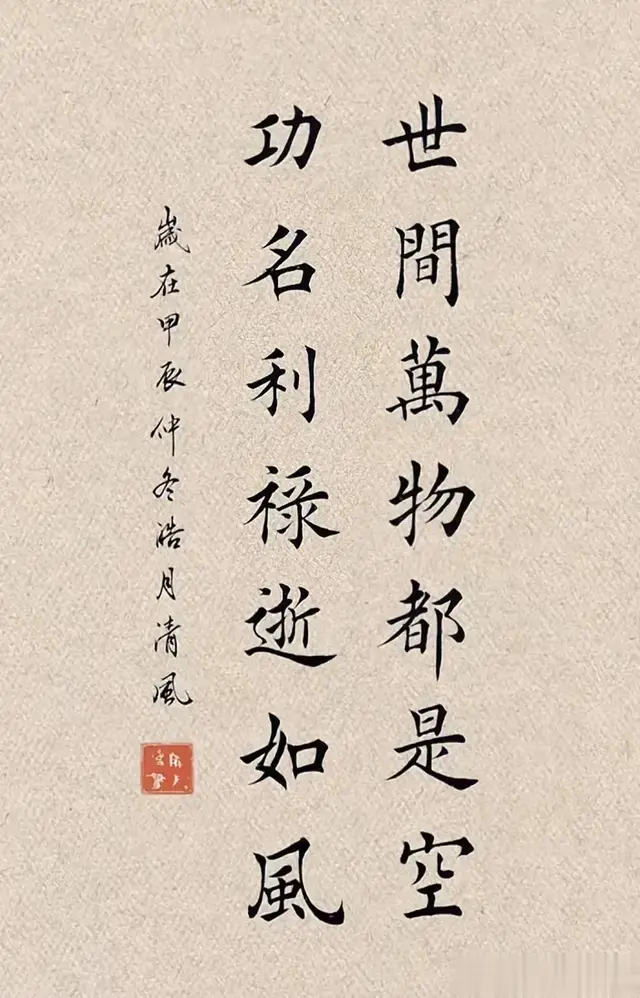 世間萬物都是空
功名利祿逝如風
歲在甲辰仲冬浩月清風